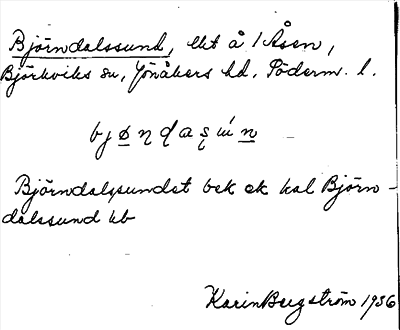 Björndalssund, lht å 1 Åsen,
Björkviks sn, Jönåkers hd, Söderm. l.
Björndalssundet bek ek kal Björn-
dalssund hb
Karin Bergström 1936